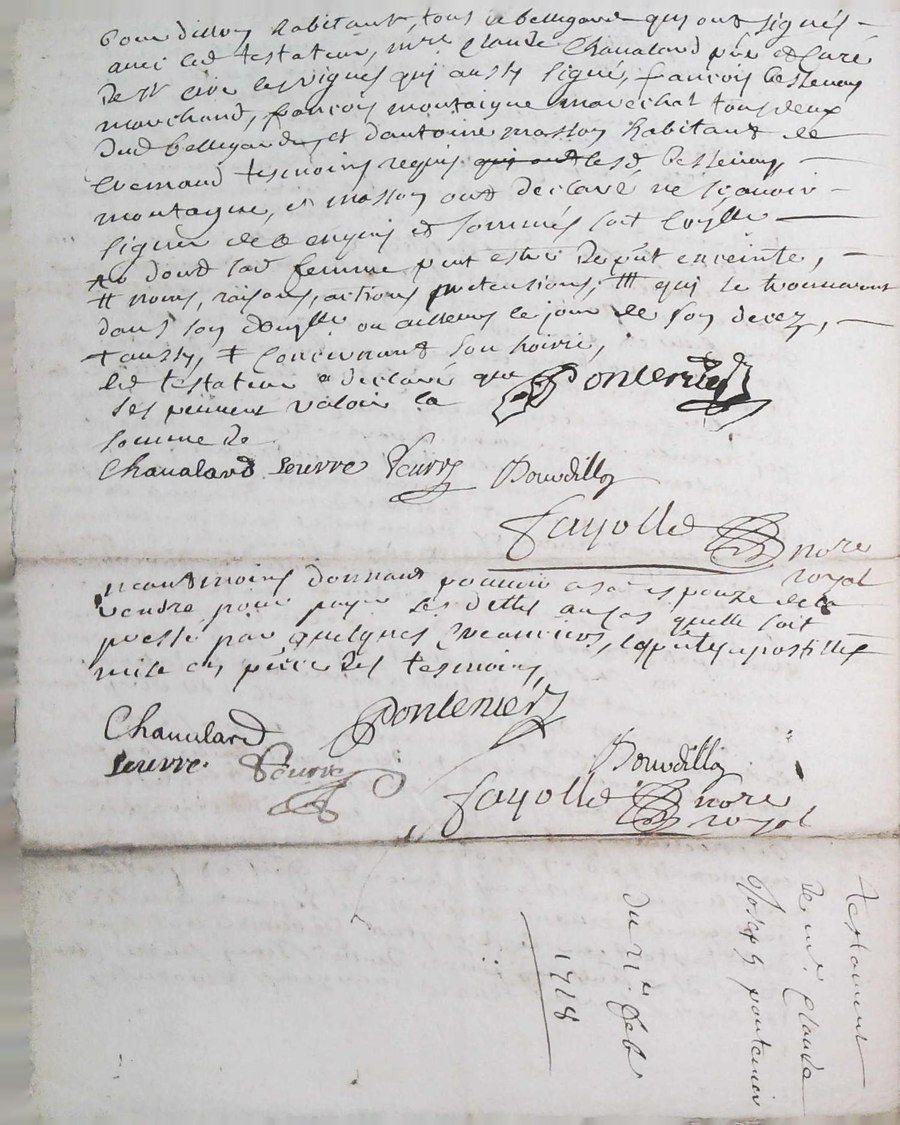 Bourdillon habitant, tous de bellegarde qui ont signés
avec led testateur, mre Claude Chaualard pre et Curé
De st Cire les vignes qui aussy signé, françois bessenay
marchand, françois montaigne marechal tous deux
dud bellegarde, et dantoine masson habitant de
tesmoins requis qui ont lesd bessenay,
montaigne, et masson ont declaré ne sçauoir
signer de ce enquis et sommés soit
dont lad femme peut estre enceinte,
# noms, raisons, actions pretensions, qui se trouueront
dans son ou ailleurs le jour de son decez,
+ aussy, ‡ Concernant son hoirie,
led testateur a declaré que Pontenier
ses peuuent valoir la
somme de
Chaualard Seurre Bourdillon
Fayolle nore
royal
neantmoins donnant pouuoir a sa espouze de
vendre pour payer ses dettes au cas quelle soit
pressé par quelques Creanciers, apostilles
mise en des tesmoins
Chaualard Pontenier
Seurre Bourdillon
Fayolle nore
royal
Testament
de mr Claude
Joseph pontenier
du feb
1718